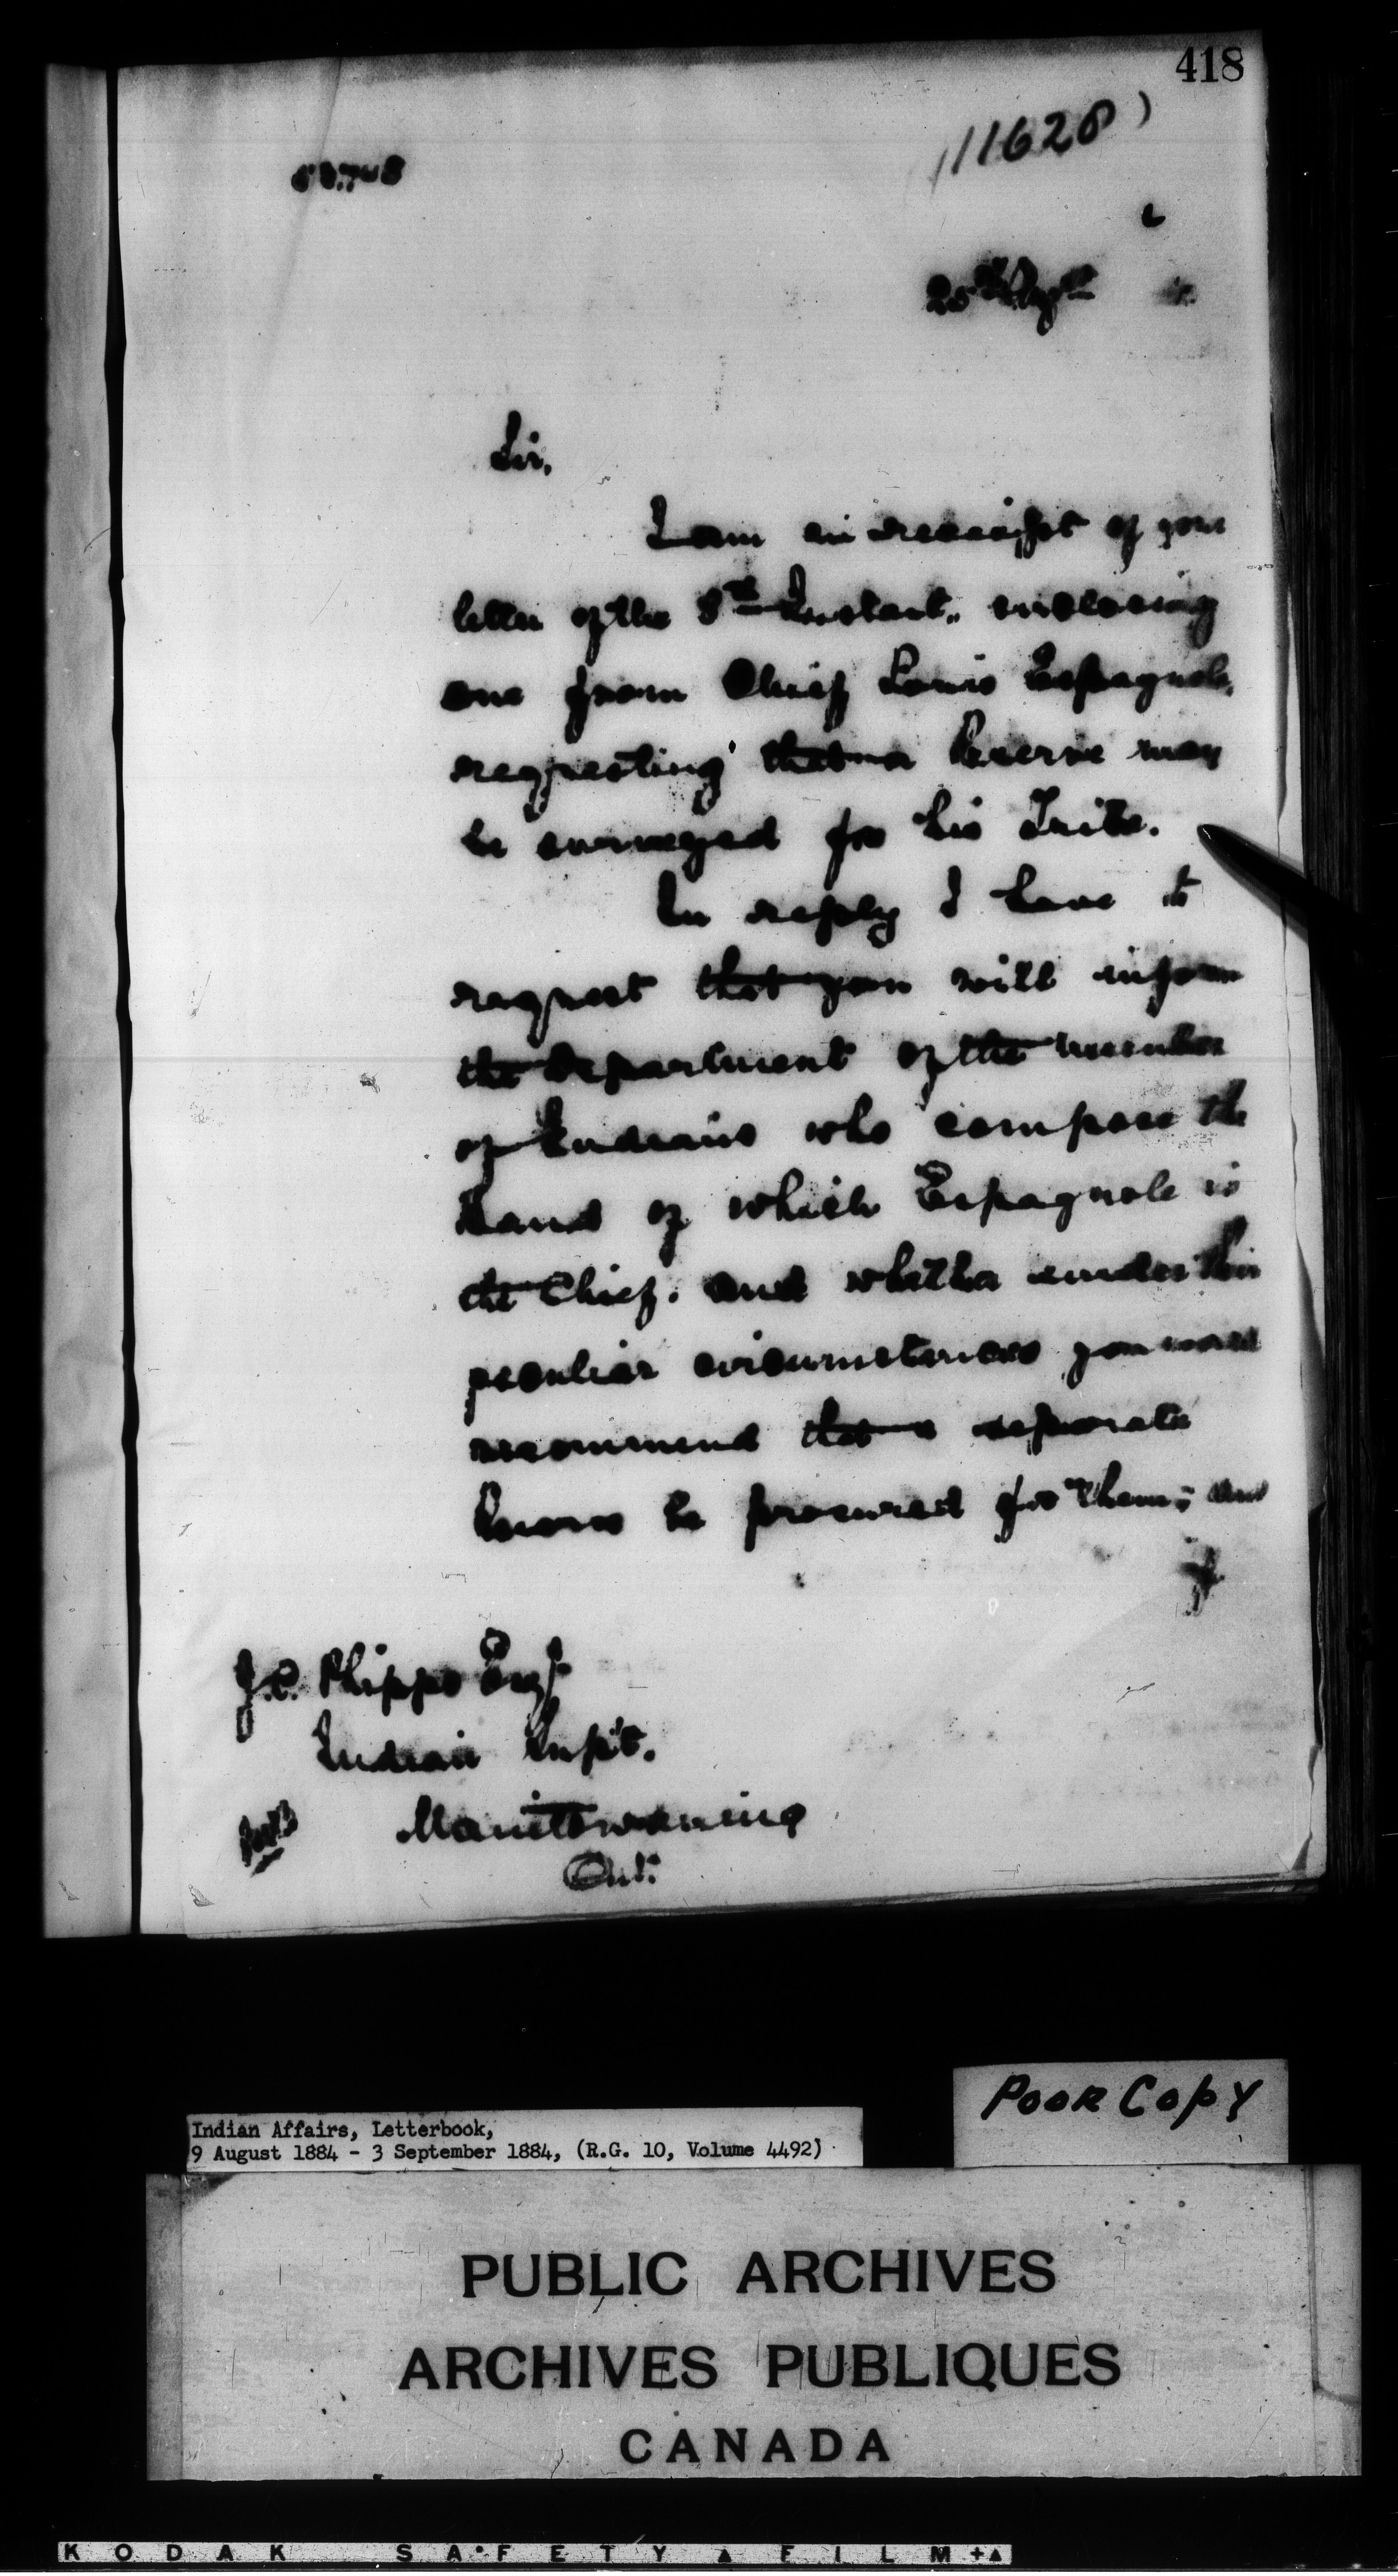 418
11628)
25th Augst
Sir,
I am in receipt of your
letter of the 8th Instant, enclosing
one from Chief Louis Espagnole,
requesting that a Reserve may
be surveyed for his Tribe.
In reply I have to
request that you will inform
the Department of the number
of Indians who compose the
Band of which Espagnole is
the Chief. and whether under their
peculiar circumstances you would
recommend that a separate
Reserve be procured for them; and
J.C. Phipps Esqr
Indian Supt.
Manitowaning
Ont.
Poor Copy
Indian Affairs, Letterbook,
9 August 1884 - 3 September 1884, (R.G. 10, Volume 4492)
PUBLIC ARCHIVES
ARCHIVES PUBLIQUES
CANADA
KODAK SAFETY FILM